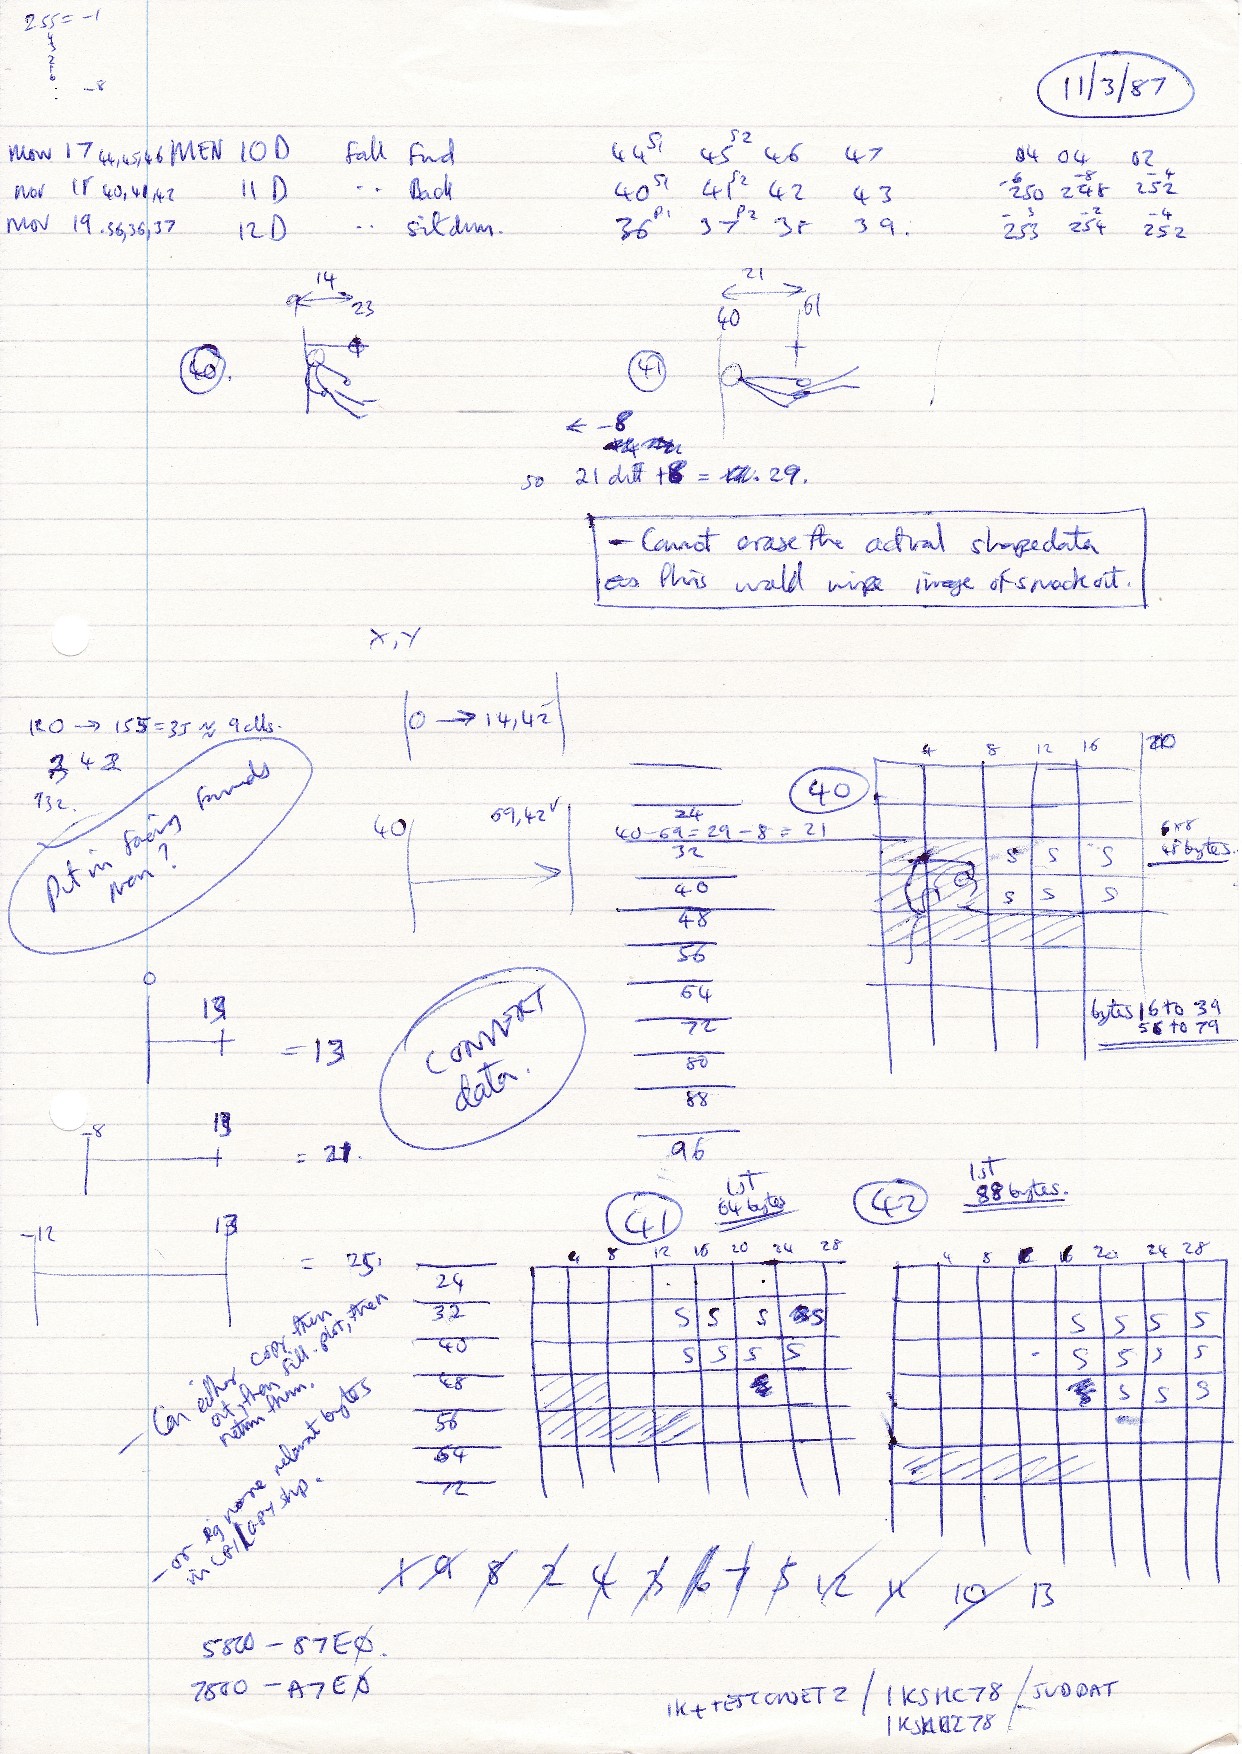 255 = -1
-8
11/3/87
Mov 17 44,45,46 MEN 10D Fall Fwd 44 S1 45 S2 46 47 04 04 02
Mov 18 40,41,42 11D " Back 40 S1 41 S2 42 43 -6 250 -8 248 -4 252
Mov 19 .36,36,37 12D " sitdwn. 36 P1 37 P2 38 39. -3 253 -2 254 -4 252
14
9 23
40.
21
40 61
41
← -8
so 21 diff +8 = 29.
- Cannot erase the actual shape data
as this would wipe image of smack out.
X,Y
0 → 14,42
120 → 155 = 35 ≈ 9 cells.
132.
Put in facing forwards
man?
40 69,42
24
40-69 = 29 - 8 = 21
32
40
48
56
64
72
80
88
96
40
4 8 12 16 20
S S S
S S S
6x8
48 bytes.
bytes 16 to 39
56 to 79
0
13
= 13
CONVERT
data.
-8 13
= 21.
-12 13
= 25.
41
1st
64 bytes
42
1st
88 bytes.
4 8 12 16 20 24 28
24
32
40
48
56
64
72
S S S S
S S S S
4 8 16 20 24 28
S S S S
S S S S
S S S
- Can either copy them
out, then fill-plot, then
return them.
- or ignore relevant bytes
in copy step.
X 9 8 2 4 3 6 7 5 12 11 10 13
5800 - 87E0.
7800 - A7E0
IK+TESTCMSET2 / IKSMC78 / JUDDAT